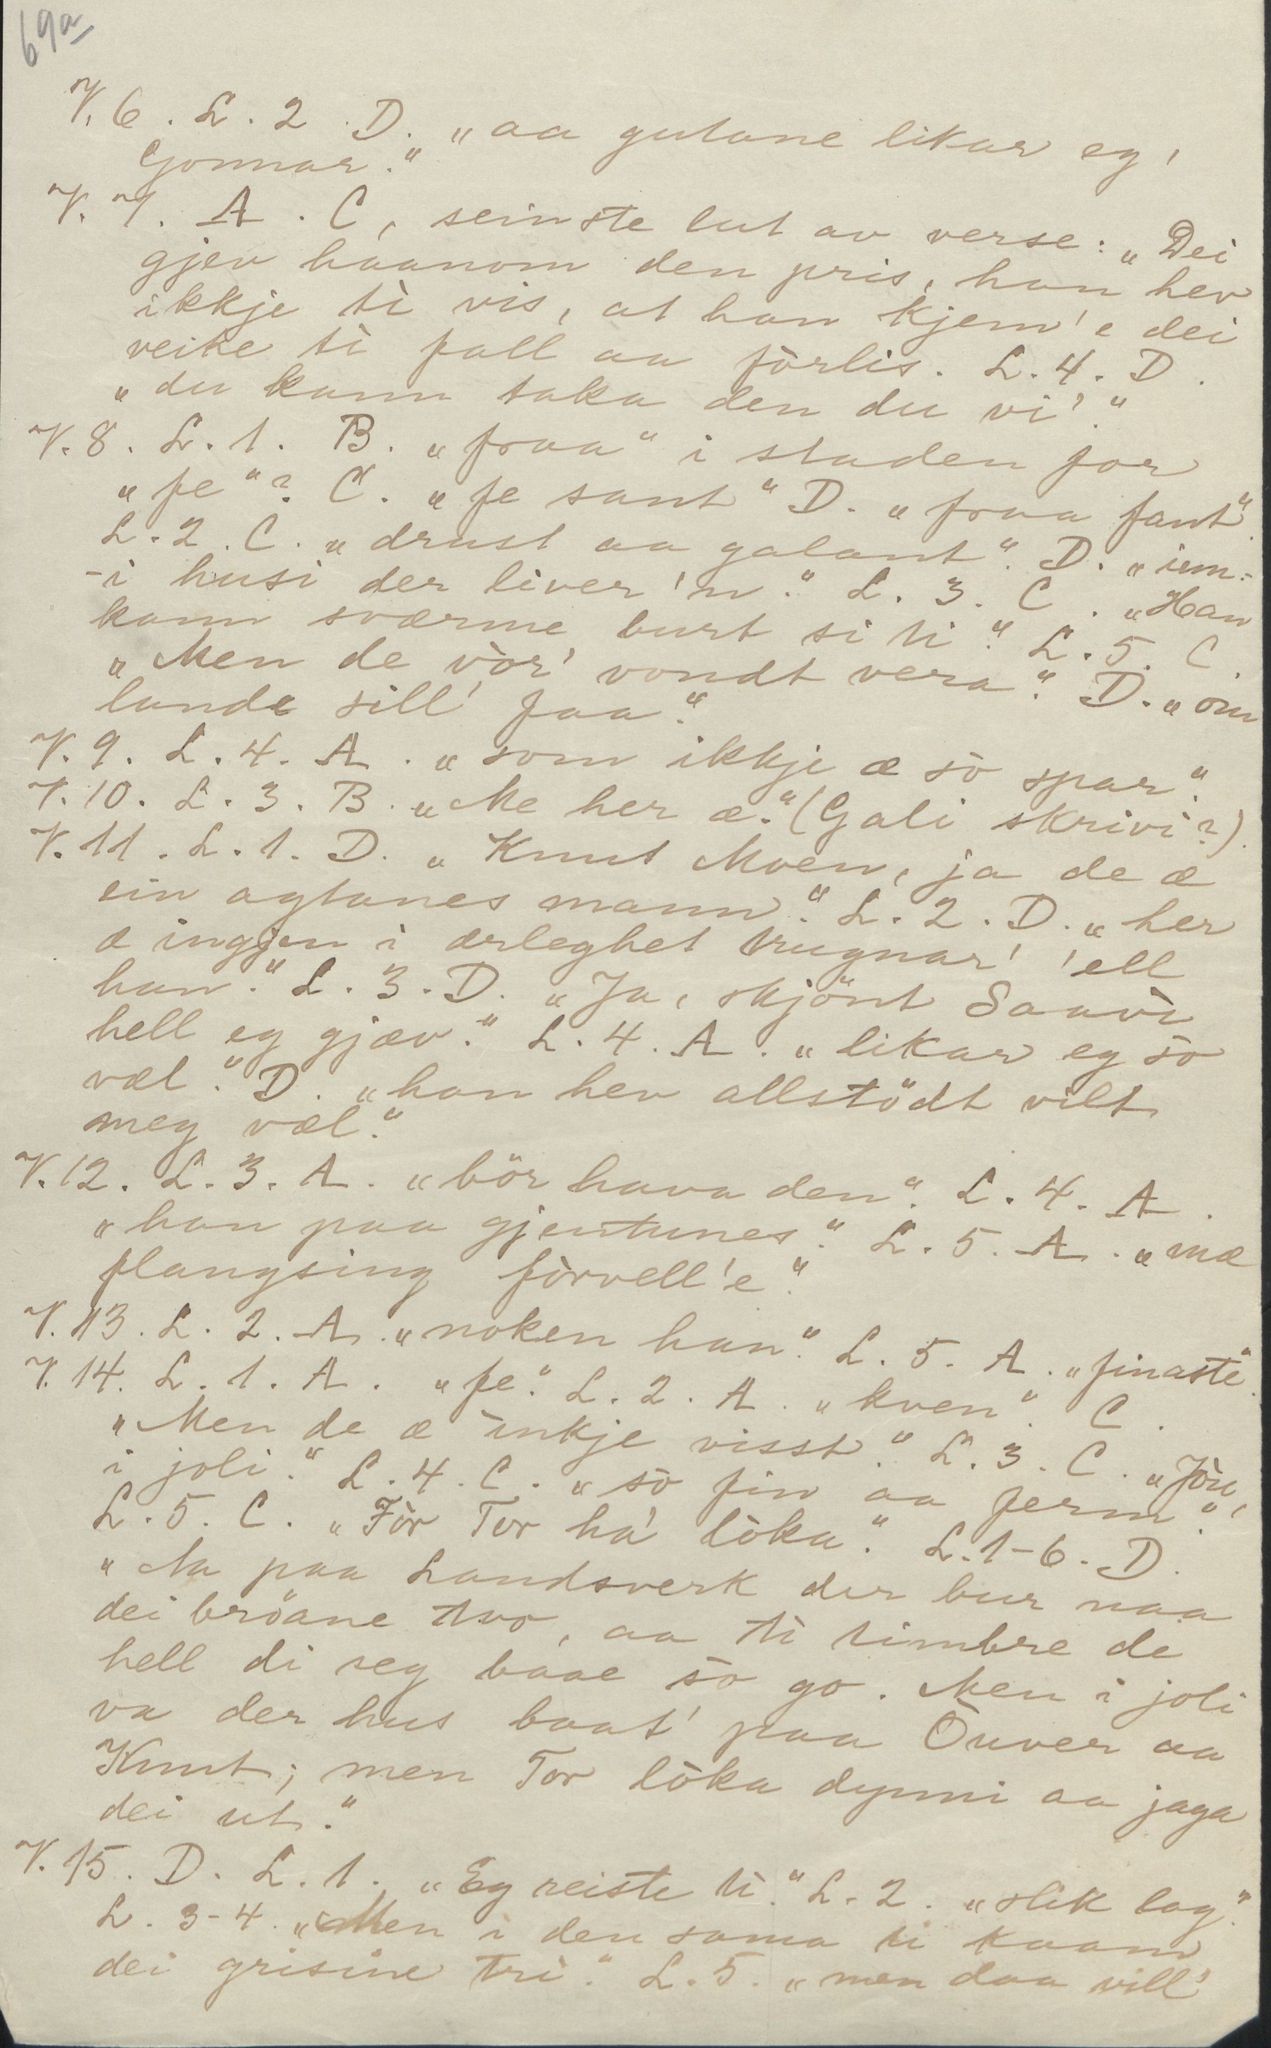 69a
V. 6. L. 2 D. „aa gutane likar eg,
Gonnar."
V. 7. A. C, seinste lut av verse: „Dei
gjev haanom den pris, han hev
ikkje ti vis, at han kjem'e dei
veike ti fall aa förlis. L. 4. D.
„du kann taka den du vi'."
V. 8. L. 1. B. „fraa" i staden for
„fe"? C. „fe sant" D. „fraa fant".
L. 2. C. „drust aa galant". D. „iem-
-i husi der liver'n." L. 3. C. „Han
kann sværme burt si ti." L. 5. C
„Men de vòr' vondt vera." D. „òm
lande sill' faa."
V. 9. L. 4. A. „som ikkje æ sò spar".
V. 10. L. 3. B. „Me her æ." (Gali skrivi?).
V. 11. L. 1. D. „Knut Moen, ja de æ
ein agtanes mann." L. 2. D. „her
æ ingjen i ærleghet trugnar' 'ell
han." L. 3. D. „Ja, skjönt Saavi
hell eg gjæv." L. 4. A. „likar eg sò
væl." D. „han hev allstödt vilt
meg væl."
V. 12. L. 3. A. „bör hava den". L. 4. A.
„han paa gjentunes." L. 5. A. „mæ
flangsing fòrvell'e."
V. 13. L. 2. A. „noken han". L. 5. A. „finaste".
V. 14. L. 1. A. „fe." L. 2. A. „kven". C.
„Men de æ inkje visst." L. 3. C. „Jòn,
i joli." L. 4. C. „sò fin aa ferm",
L. 5. C. „Fòr Tor ha' lòka." L. 1-6. D.
„Aa paa Landsverk der bur naa
dei bröane tvo, aa ti timbre de
hell di seg baae sò go. Men i joli
va der hus baat' paa Òuver aa
Knut; men Tor lòka dynni aa jaga
dei ut."
V. 15. D. L. 1. „Eg reiste ti." L. 2. „slik lag".
L. 3-4. „Men i den sama ti kaam
dei grisine tri." L. 5. „men daa vill'